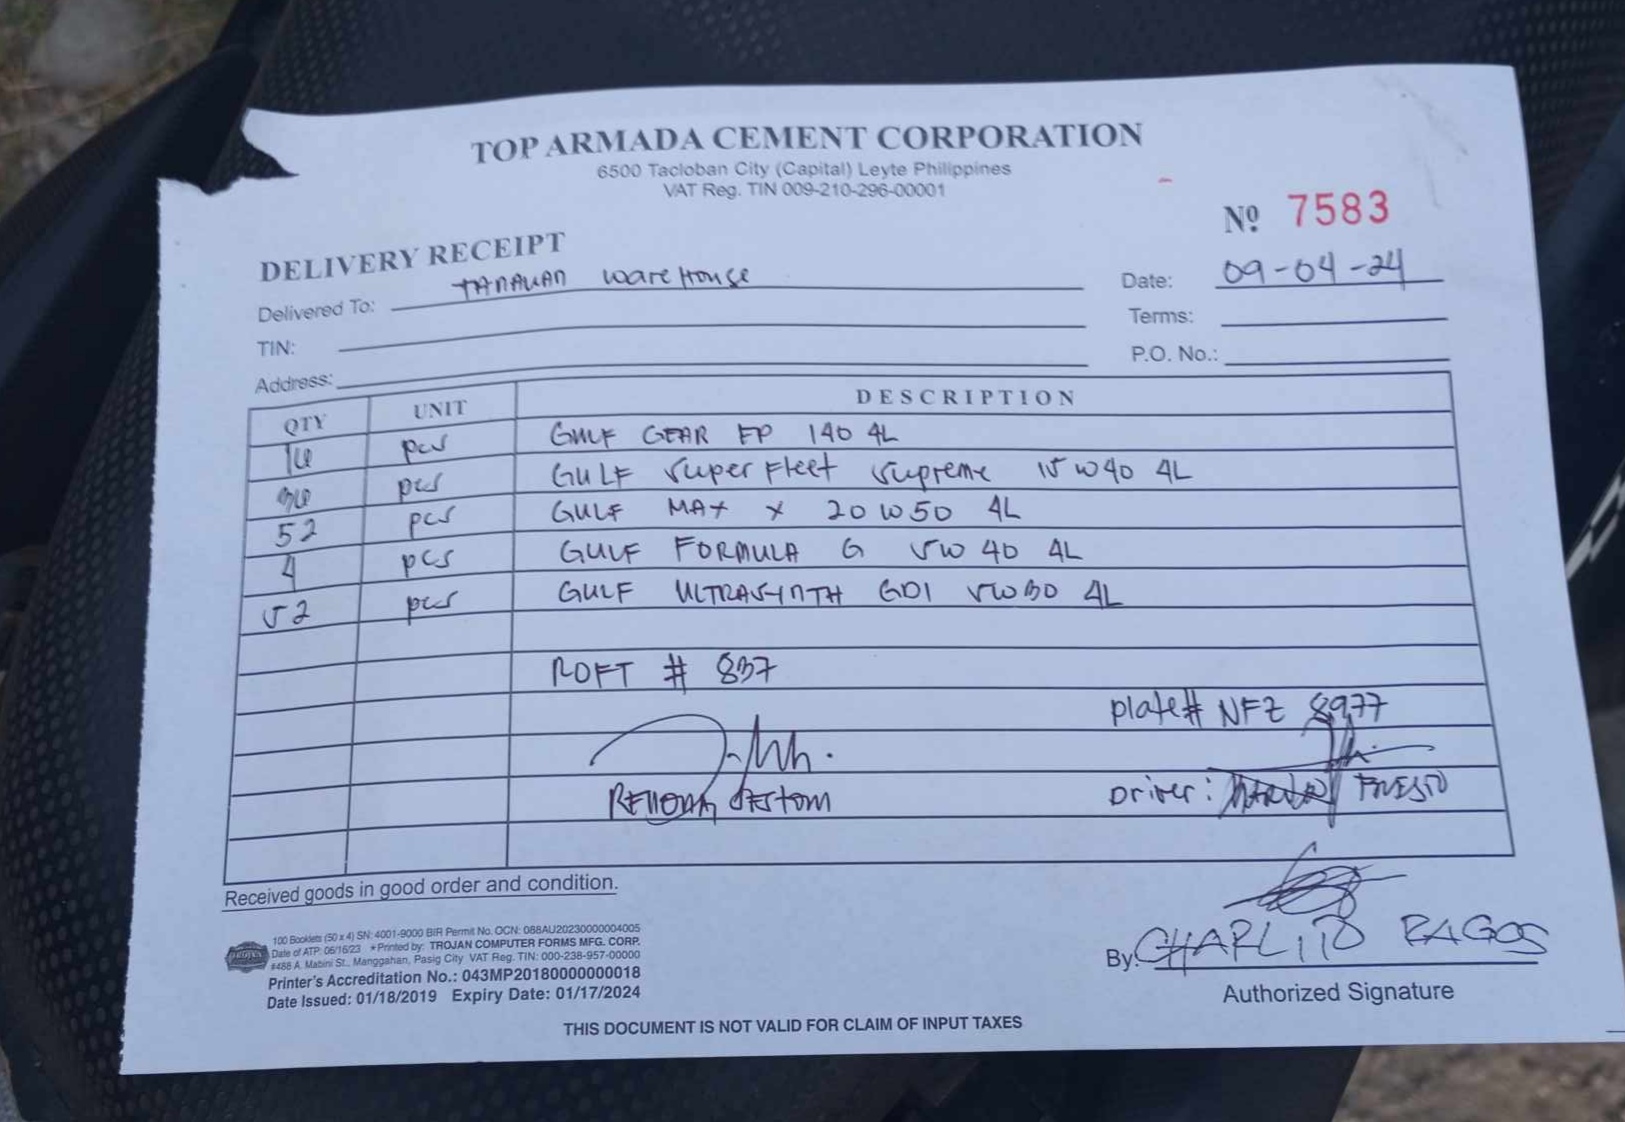 TOP ARMADA CEMENT CORPORATION
6500 Tacloban City (Capital) Leyte Philippines
VAT Reg. TIN 009-210-296-00001
Nº 7583
DELIVERY RECEIPT
Delivered To: TANAUAN WareHouse
Date: 09-04-24
TIN:
Terms:
Address:
P.O. No.:
QTY UNIT DESCRIPTION
16 pcs GULF GEAR EP 140 4L
36 pcs GULF Super Fleet Supreme 15W40 4L
52 pcs GULF MAX X 20W50 4L
4 pcs GULF FORMULA G 5W40 4L
52 pcs GULF ULTRASYNTH GDI 5W30 4L
ROFT # 837
plate# NFZ 8977
Driver:
Received goods in good order and condition.
100 Booklets (50 x 4) SN: 4001-9000 BIR Permit No. OCN: 088AU20230000004005
Date of ATP: 06/16/23 • Printed by: TROJAN COMPUTER FORMS MFG. CORP.
#488 A. Mabini St., Manggahan, Pasig City VAT Reg. TIN: 000-238-957-00000
Printer's Accreditation No.: 043MP20180000000018
Date Issued: 01/18/2019 Expiry Date: 01/17/2024
By: CHARLITO RAGOS
Authorized Signature
THIS DOCUMENT IS NOT VALID FOR CLAIM OF INPUT TAXES